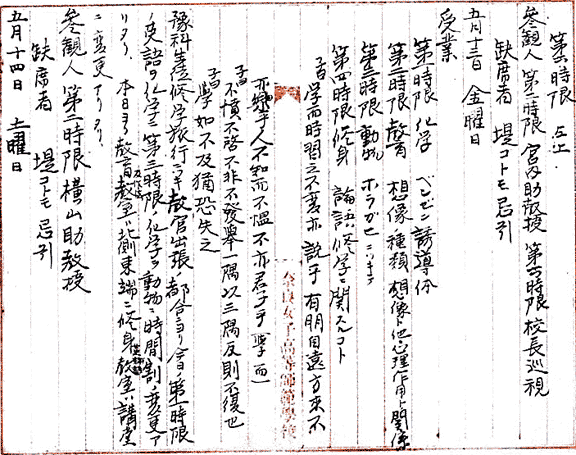 第六時限 同上
参観人 第一時限 宮内助教授 第六時限 校長巡視
欠席者 堤コトモ忌引
五月十三日 金曜日
受業
第一時限 化学 ベンゼン誘導体
第二時限 教育 想像ノ種類 想像ト他心理作用ト関係
第三時限 動物 ホラガヒニツキテ
第四時限 修身 論語ノ修学ニ関スルコト
子曰学而時習之不亦説乎 有朋自遠方来不
亦楽乎人不知而不慍不亦君子乎(学而)
子曰不憤不啓不悱不發挙一隅以三隅反則不復也
子曰学如不及猶恐失之
豫科生修学旅行ニツキ教官出張ノ都合ニヨリ今日ノ第一時限
ノ国語ヲ化学ニ第三時限ノ化学ヲ動物ニ時間割ノ変更ア
リタリ 本日ヨリ教育教室ハ北側東端ニ修身教室ハ講堂
ニ変更アリタリ
参観人 第二時限 横山助教授
五月十四日 土曜日
欠席者 堤コトモ忌引
奈良女子高等師範学校